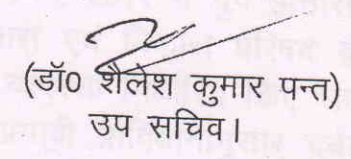 (डॉ0 शैलेश कुमार पन्त)
उप सचिव।